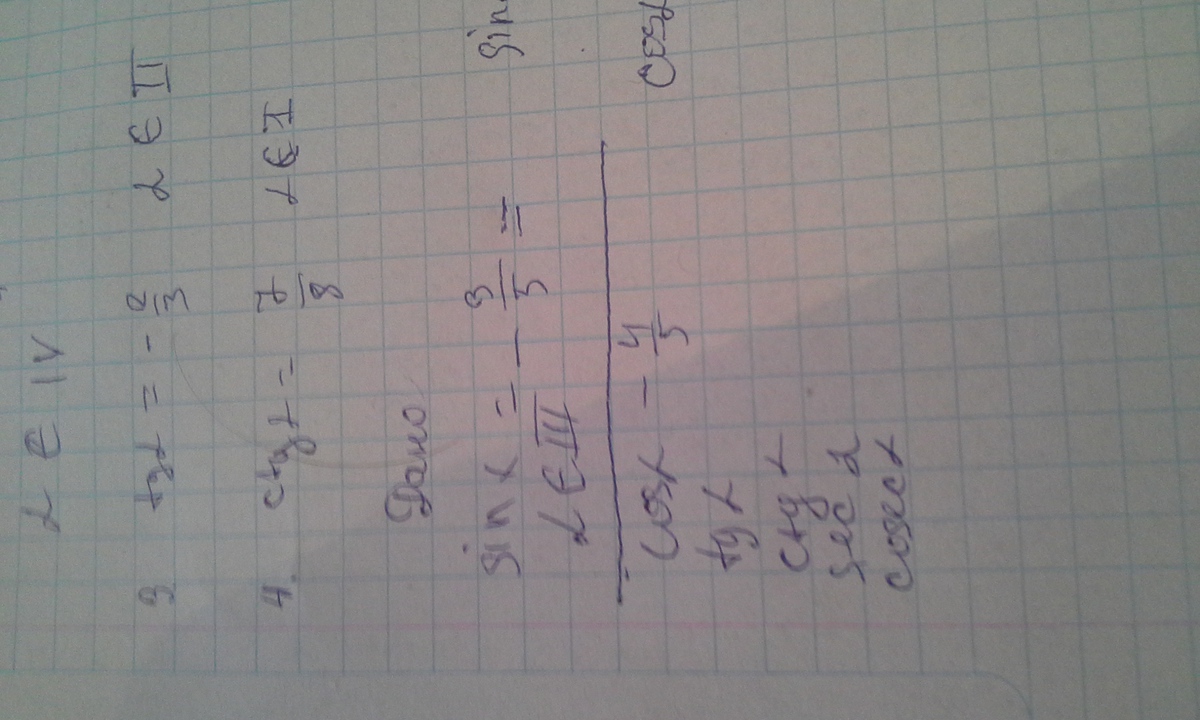 α ∈ IV
3 tgα = - 2/3 α ∈ II
4. ctgα = 7/8 α ∈ I
Дано
sin α = - 3/5 = sin
α ∈ III
cosα - 4/5 cosα
tg α
ctg α
sec α
cosec α